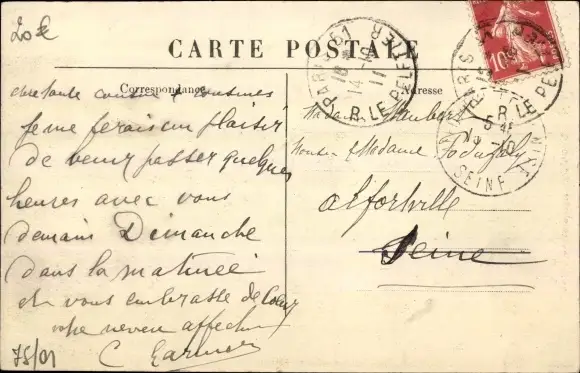 20€
CARTE POSTALE
Correspondance
Adresse
chere tante cousin & cousines
je me ferais un plaisir
de venir passer quelques
heures avec vous
demain Dimanche
dans la matinée
et vous embrasse de Cœur
votre neveu affectionné
C
75/01
Madame
Monsieur & Madame
alfortville
Seine
PARIS 51
R. LE PELETIER
PARIS 51
R. LE PE
SEINE
10